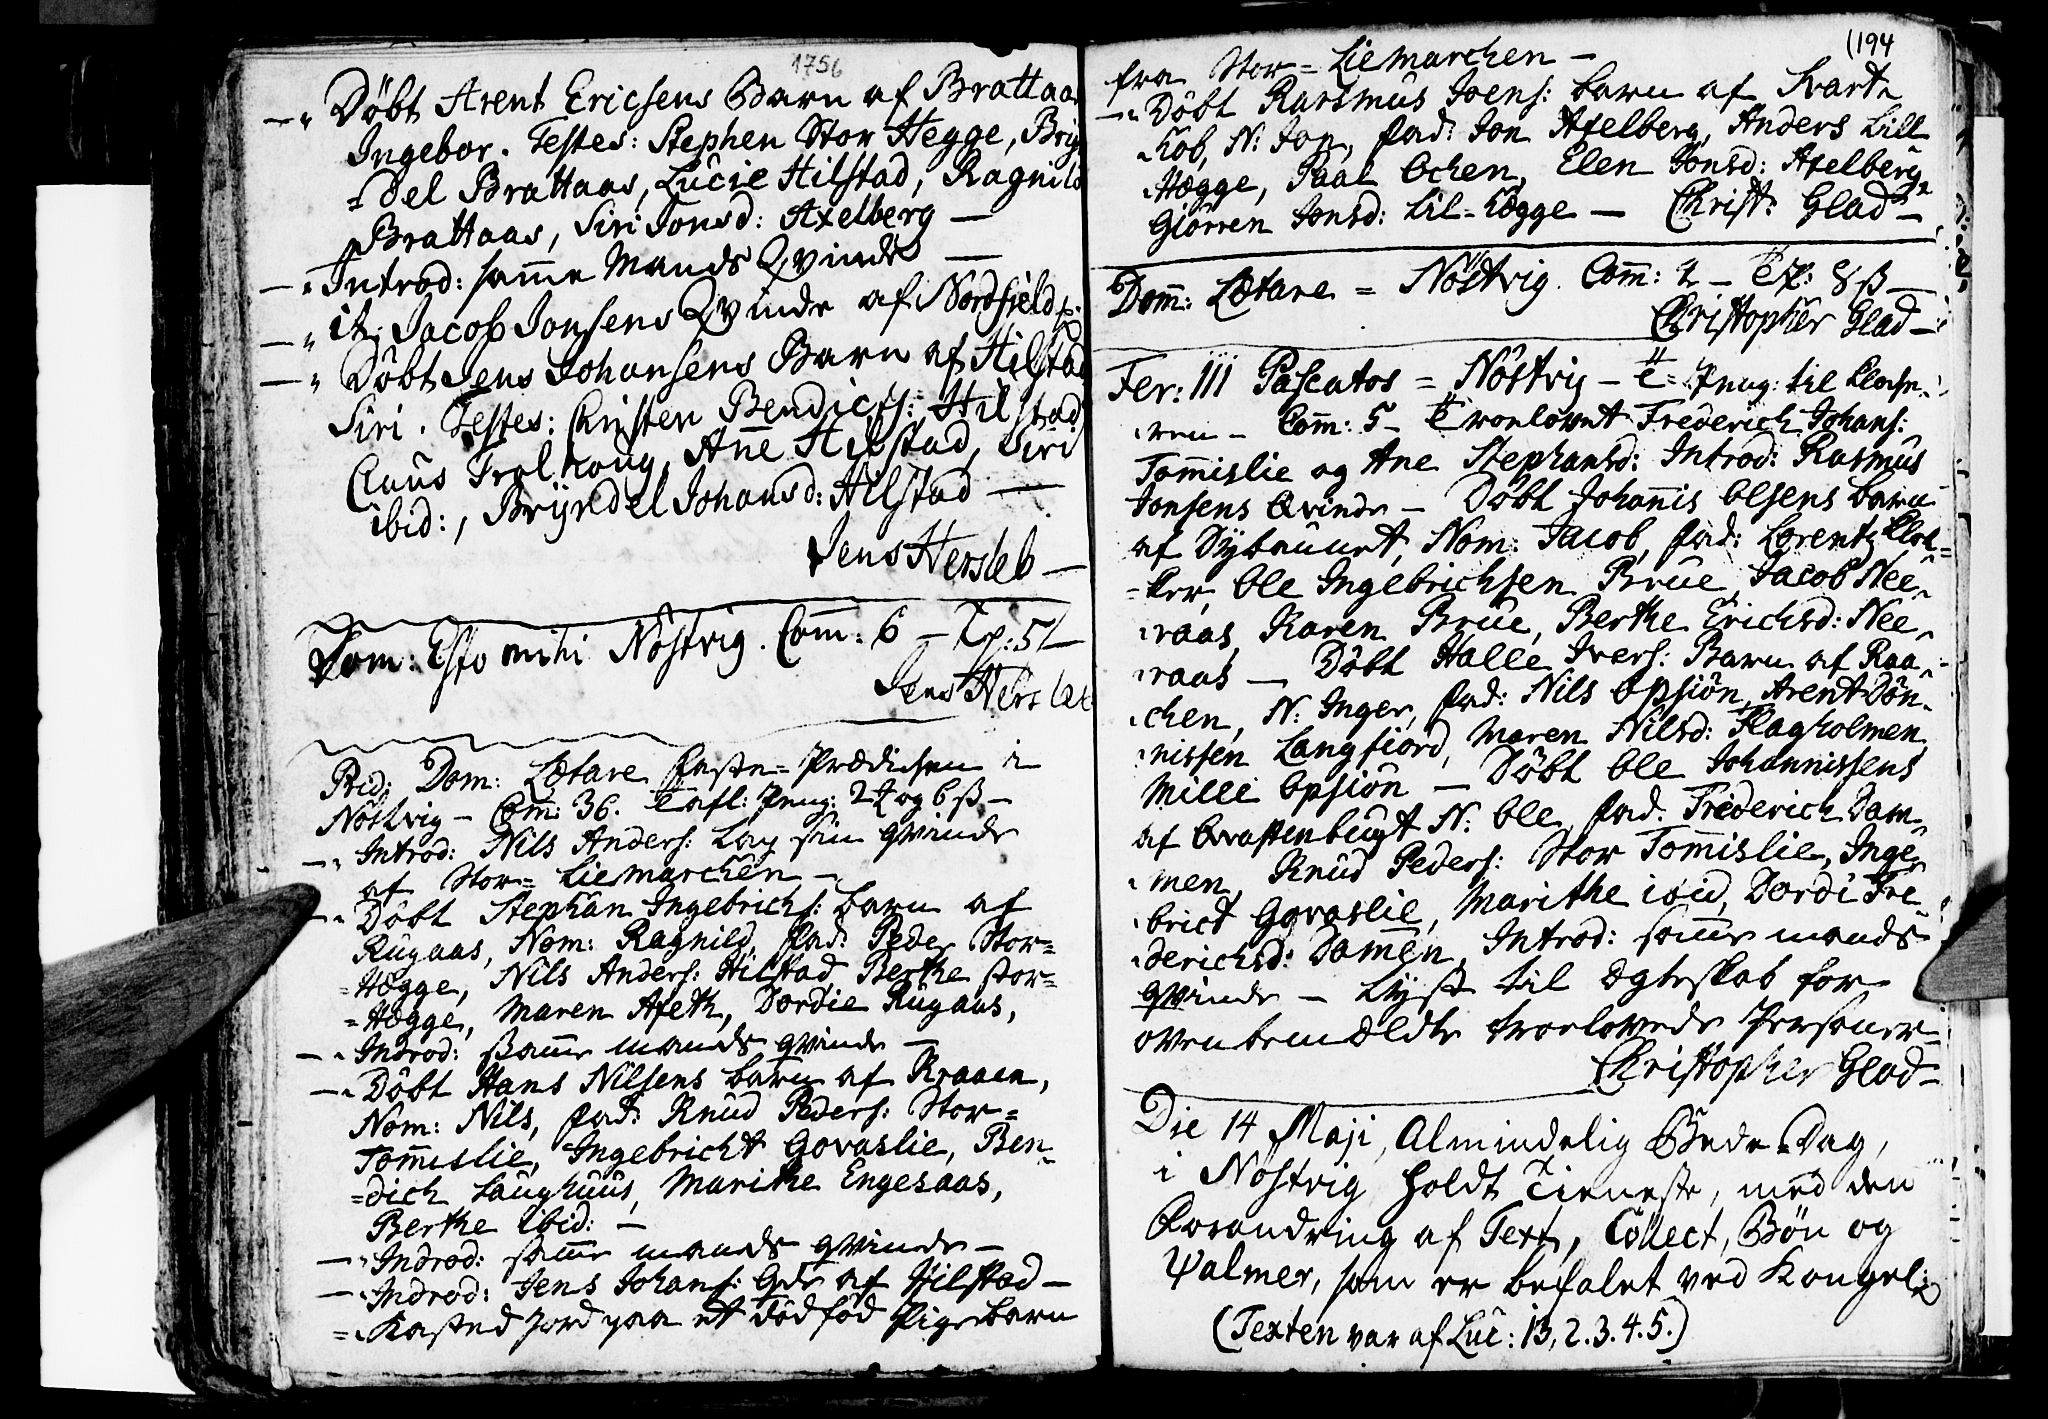 1756
Döbt Arent Ericsens Barn af Brattaa
Ingebor. Testes: Stephen Stor Hegge, Bry
del Brattaas, Lucie Hilstad, Ragnild
Brattaas, Siri Jonsd: Axelberg —
Introd: same Mands Qvinde —
it: Jacob Jonsens Qvinde af Nordfield
Döbt Jens Johansens Barn af Hilstad
Siri. Testes: Christen Bendicts: Hilstad
Claus Trolhoug, Ane Hilstad, Siri
ibid:, Bryndel Johansd: Hilstad —
Jens Hersleb —
Dom: Esto mihi Nöstvig. Com: 6 —
Jens Hersleb
Prid: Dom: Lætare Faste-Prædichen i
Nöstvig — Com: 36. Tafl: Peng: 2 og 6 ß —
Introd: Nils Anders: Lay sin qvinde
af Stor-Liemarchen —
Döbt Stephan Ingebrichs: barn af
Rugaas, Nom: Ragnild, fad: Peder Stor-
Hægge, Nils Anders: Hilstad Berthe Stor-
Hægge, Maren Axeth, Dordie Rugaas,
Indrod: samme mands qvinde —
Döbt Hans Nilsens barn af Kraaen,
Nom: Nils, fad: Knud Peders: Stor-
Tommislie, Ingebricht Govaslie, Ben-
dich Laughuus, Marithe Engesaas,
Berthe ibid: —
Indrod: samme mands qvinde —
Indrod: Jens Johans: Qde af Hilstad —
Kasted jord paa et dödfød Pigebarn
(194
fra Stor-Liemarchen —
Döbt Rarsmus Joens: barn af Svart
Kob, N: Jon, fad: Jon Axelberg, Anders Lill
Hægge, Paal Ochen, Elen Jonsd: Axelberg
Giörren Jonsd: Lil-Hægge — Christ: Glad —
Dom: Lætare = Nöstvig. Com: 2 — Exp: 8 ß —
Christopher Glad —
Fer: III Pascatos = Nöstvig — Peng: til Klock-
ren — Com: 5 — Troelovet Frederich Johans:
Tommislie og Ane Stephansd: Introd: Rasmus
Jonsens Qvinde — Döbt Johannis Olsens barn
af Dybaunet, Nom: Jacob, fad: Lorentz Klok-
ker, Ole Ingebrichsen Brue, Jacob Nee-
raas, Karen Brue, Berthe Erichsd: Nee-
raas — Döbt Halle Ivers: Barn af Raa-
chen, N: Inger, fad: Nils Opsiön, Arent Dön-
nissen Langfiord, Maren Nilsd: Flagholmen
Mille Opsiön — Döbt Ole Johannissens
af Qvastenbugt N: Ole, fad. Frederich Dam-
men, Knud Peders: Stor Tommislie, Inge
brict Govaslie, Marithe ibid, Dordi Fre
derichsd: Damen, Introd: samme mands
qvinde — Lyst til ægteskab for
ovenbemældte troelovede Personer —
Christopher Glad —
Die 14 Maji, Almindelig Bede-Dag,
i Nöstvig holdt Tieneste, med den
Forandring af Text, Collect, Bön og
Psalmer, som er befalet ved Kongel:
(Texten var af Luc: 13, 2.3.4.5.)